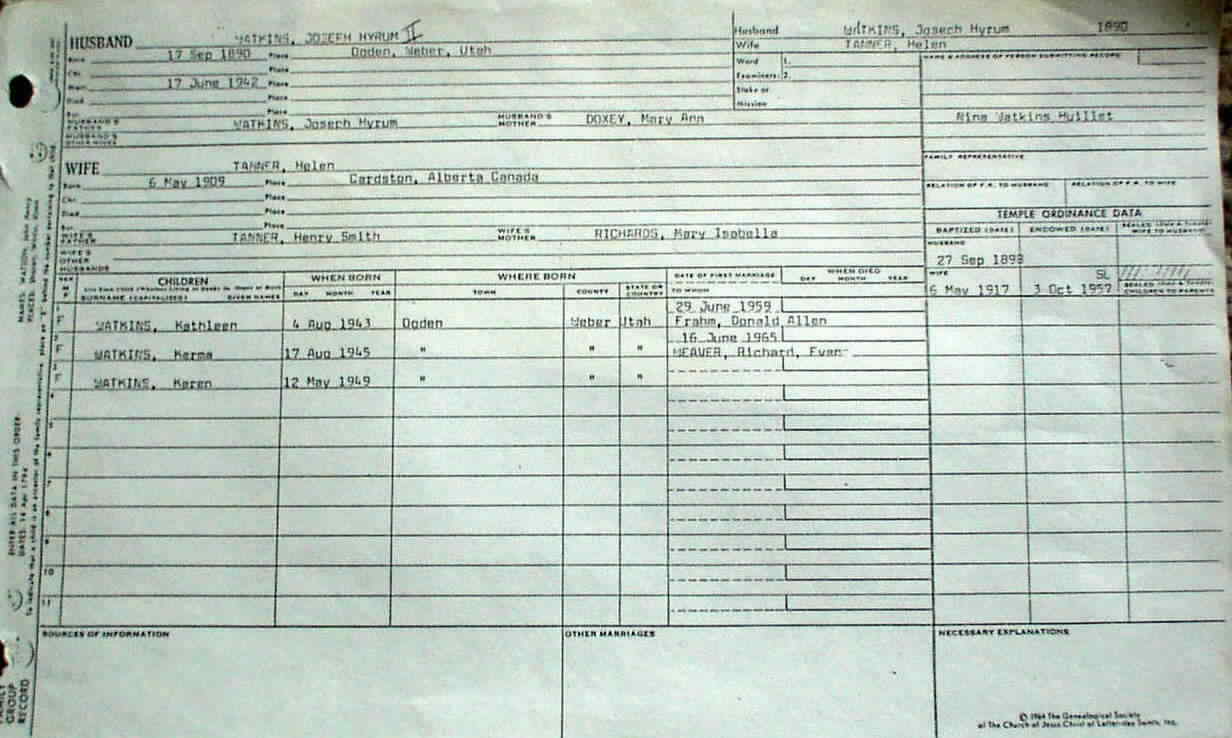 HUSBAND WATKINS, JOSEPH HYRUM II
Born 17 Sep 1890 Place Ogden, Weber, Utah
Chr. Place
Marr. 17 June 1942 Place
Died Place
Bur. Place
HUSBAND'S FATHER WATKINS, Joseph Hyrum HUSBAND'S MOTHER DOXEY, Mary Ann
HUSBAND'S OTHER WIVES
Husband WATKINS, Joseph Hyrum 1890
Wife TANNER, Helen
Ward 1.
Examiners: 2.
Stake or
Mission
NAME & ADDRESS OF PERSON SUBMITTING RECORD
Nina Watkins
WIFE TANNER, Helen
Born 6 May 1909 Place Cardston, Alberta Canada
Chr. Place
Died Place
Bur. Place
WIFE'S FATHER TANNER, Henry Smith WIFE'S MOTHER RICHARDS, Mary Isobella
WIFE'S OTHER HUSBANDS
FAMILY REPRESENTATIVE
RELATION OF F.R. TO HUSBAND RELATION OF F.R. TO WIFE
TEMPLE ORDINANCE DATA
BAPTIZED (DATE) ENDOWED (DATE) SEALED (Date & Temple) WIFE TO HUSBAND
HUSBAND
27 Sep 1898
WIFE SL
6 May 1917 3 Oct 1957 SEALED (Date & Temple) CHILDREN TO PARENTS
SEX M F CHILDREN WHEN BORN WHERE BORN DATE OF FIRST MARRIAGE WHEN DIED
List Each Child (Whether Living or Dead) in Order of Birth
SURNAME (CAPITALIZED) GIVEN NAMES DAY MONTH YEAR TOWN COUNTY STATE OR COUNTRY TO WHOM DAY MONTH YEAR
29 June 1959
1 F WATKINS, Kathleen 4 Aug 1943 Ogden Weber Utah Frahm, Donald Allen
16 June 1965
2 F WATKINS, Kerma 17 Aug 1945 " " " WEAVER, Richard, Evan
3 F WATKINS, Karen 12 May 1949 " " "
4
5
6
7
8
9
10
11
SOURCES OF INFORMATION OTHER MARRIAGES NECESSARY EXPLANATIONS
© 1964 The Genealogical Society
of The Church of Jesus Christ of Latter-day Saints, Inc.
ENTER ALL DATA IN THIS ORDER:
DATES: 14 Apr 1794
NAMES: WATSON, John Henry
FAMILY GROUP RECORD